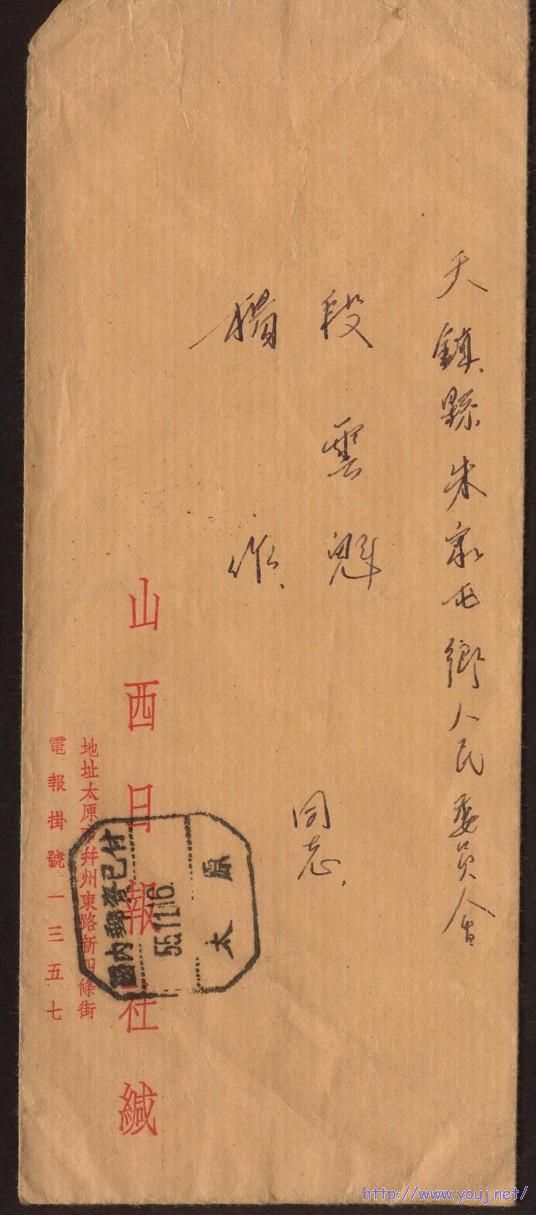 天鎮縣朱家屯鄉人民委員會
段雲魁
同志
作
山西日報社緘
地址太原市并州東路新四條街
電報掛號一三五七
太原
55.11.16.
國內郵資已付
http://www.youj.net/